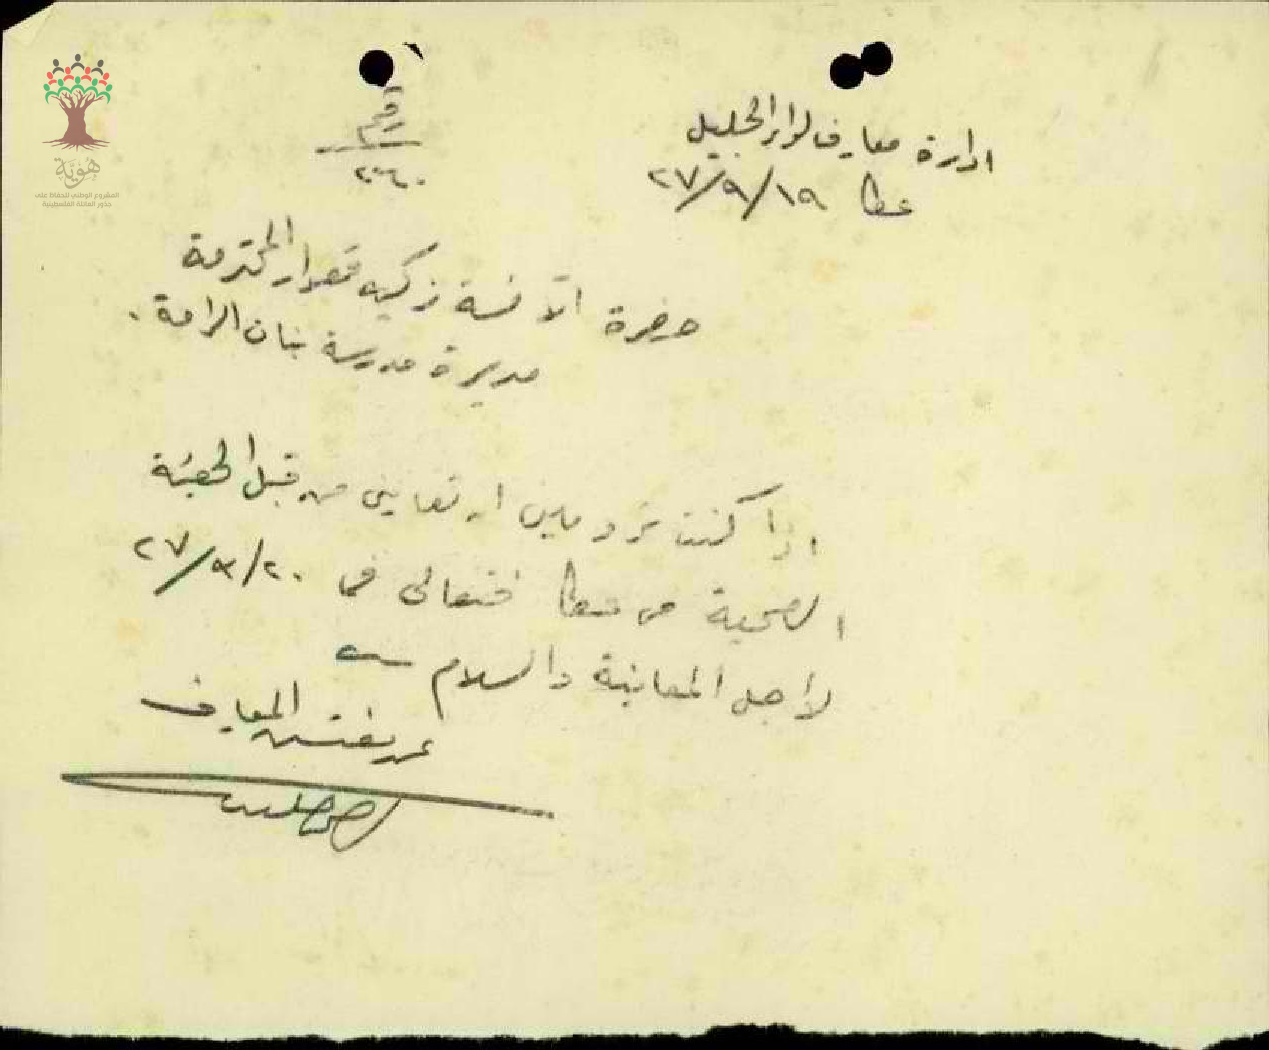 هوية
المشروع الوطني للحفاظ على
جذور العائلة الفلسطينية
رقم
ادارة معارف لواء الجليل
عكا ٢٧/٩/١٩
حضرة الآنسة زكية قعوار المحترمة
مديرة مدرسة بنات الرامة .
اذا كنت تودين ان تعايني من قبل الهيئة
الصحية في عكا فتعالي في ٢٧/٩/٢٠
لاجل المعاينة والسلام
عن مفتش المعارف